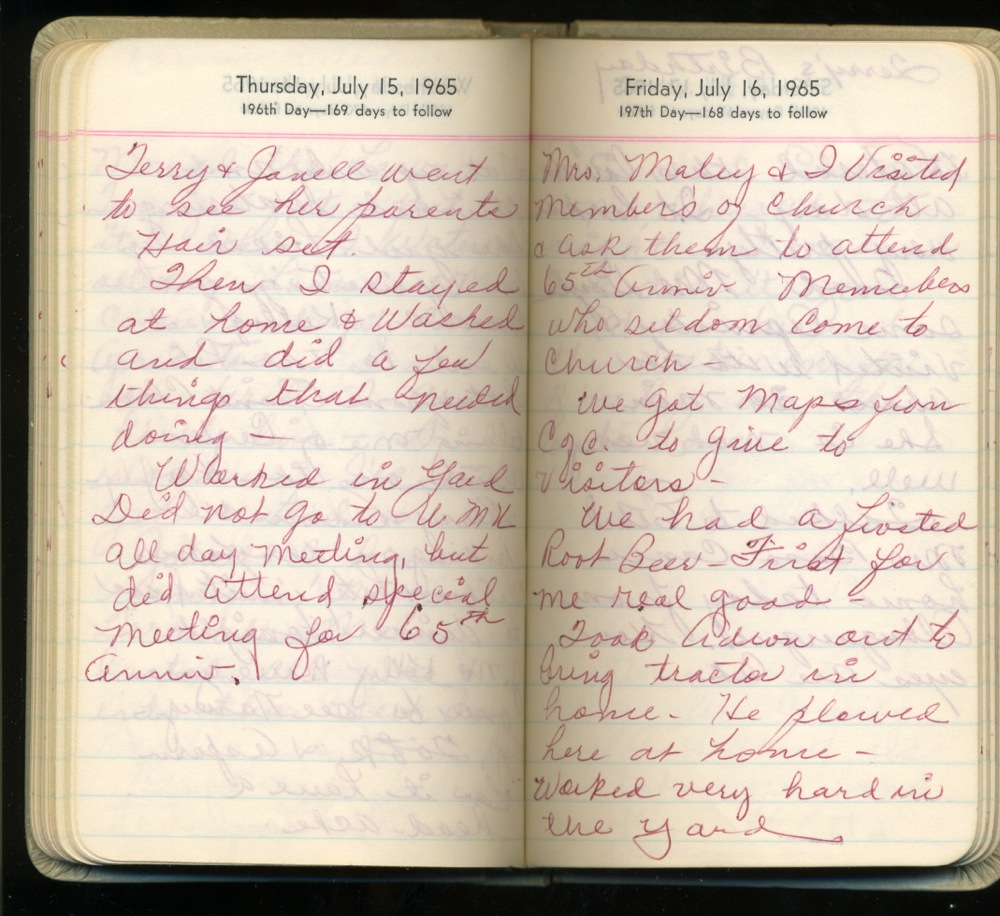 Thursday, July 15, 1965
196th Day—169 days to follow
Terry & Janell went
to see her parents
Hair set.
Then I stayed
at home & Washed
and did a few
things that needed
doing —
Worked in Yard
Did not go to
all day Meeting, but
did attend special
Meeting for 65th
Anniv.
Friday, July 16, 1965
197th Day—168 days to follow
Mrs. Maley & I Visited
Members of Church
& ask them to attend
65th Anniv Members
who seldom come to
Church —
We got Maps from
C of C. to give to
Visitors —
We had a frosted
Root Beer — First for
me real good —
Took out to
bring tractor in
home. He plowed
here at home —
Worked very hard in
the yard
Terry's Birthday